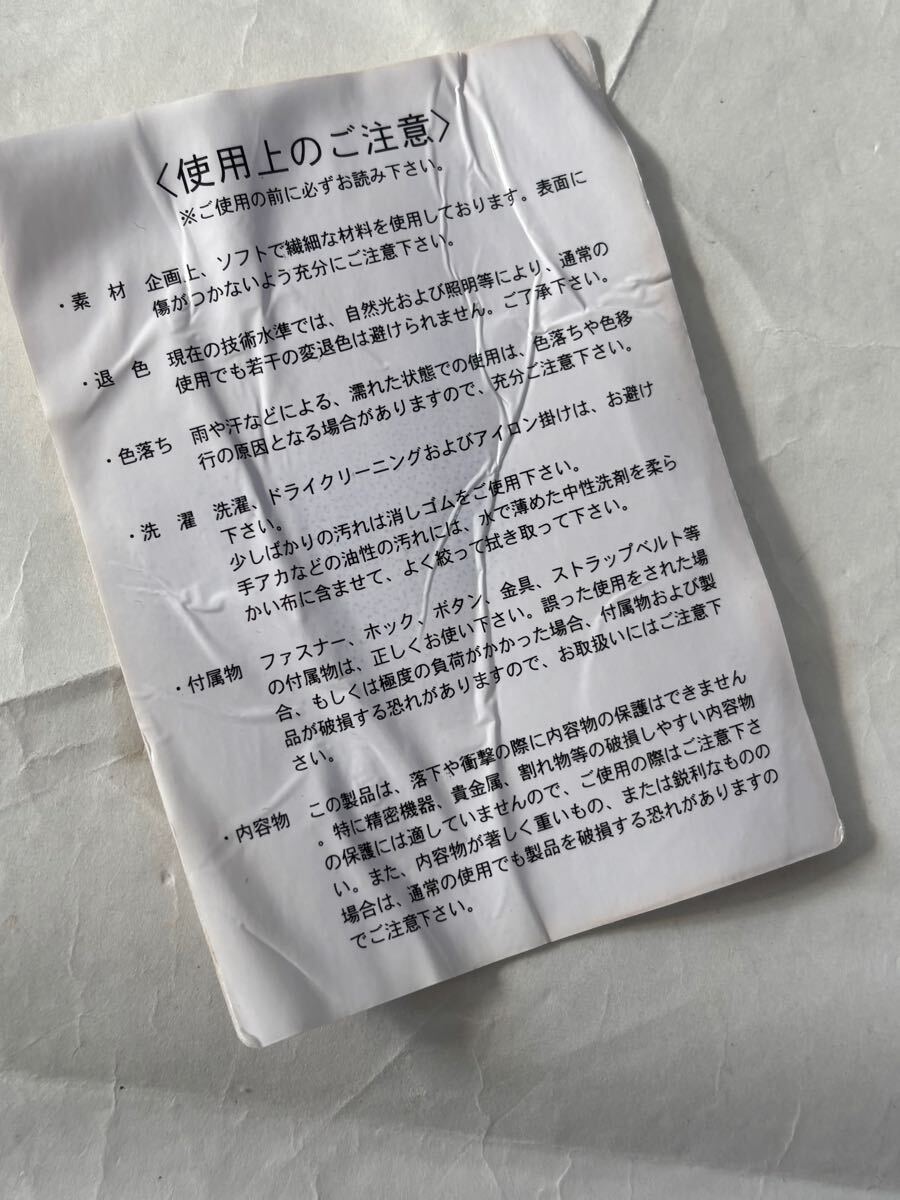 〈使用上のご注意〉
※ご使用の前に必ずお読み下さい。
・素 材 企画上、ソフトで繊細な材料を使用しております。表面に
傷がつかないよう充分にご注意下さい。
・退 色 現在の技術水準では、自然光および照明等により、通常の
使用でも若干の変退色は避けられません。ご了承下さい。
・色落ち 雨や汗などによる、濡れた状態での使用は、色落ちや色移
行の原因となる場合がありますので、充分ご注意下さい。
・洗 濯 洗濯、ドライクリーニングおよびアイロン掛けは、お避け
下さい。
少しばかりの汚れは消しゴムをご使用下さい。
手アカなどの油性の汚れには、水で薄めた中性洗剤を柔ら
かい布に含ませて、よく絞って拭き取って下さい。
・付属物 ファスナー、ホック、ボタン、金具、ストラップベルト等
の付属物は、正しくお使い下さい。誤った使用をされた場
合、もしくは極度の負荷がかかった場合、付属物および製
品が破損する恐れがありますので、お取扱いにはご注意下
さい。
・内容物 この製品は、落下や衝撃の際に内容物の保護はできません
。特に精密機器、貴金属、割れ物等の破損しやすい内容物
の保護には適していませんので、ご使用の際はご注意下さ
い。また、内容物が著しく重いもの、または鋭利なものの
場合は、通常の使用でも製品を破損する恐れがありますの
でご注意下さい。